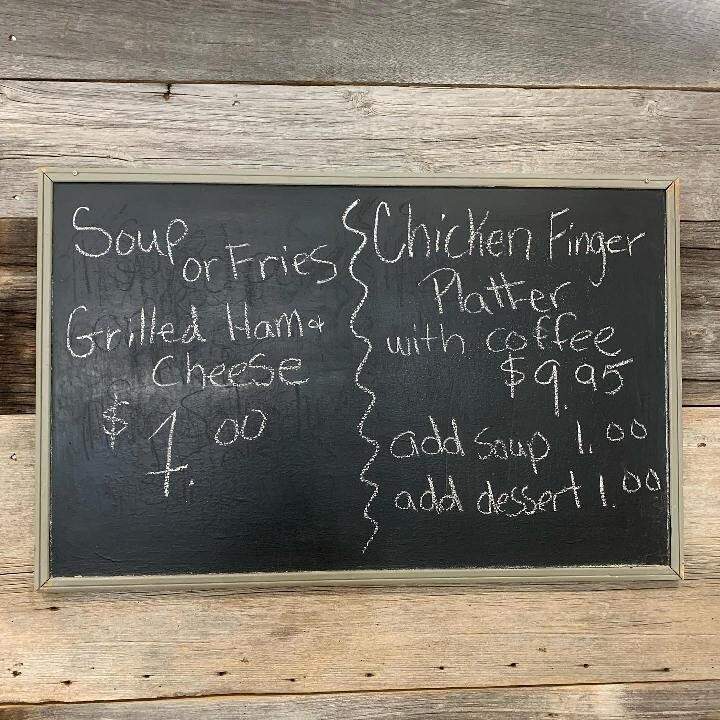 Soup or Fries
Grilled Ham &
Cheese
$ 7.00
Chicken Finger
Platter
with coffee
$9.95
add soup 1.00
add dessert 1.00